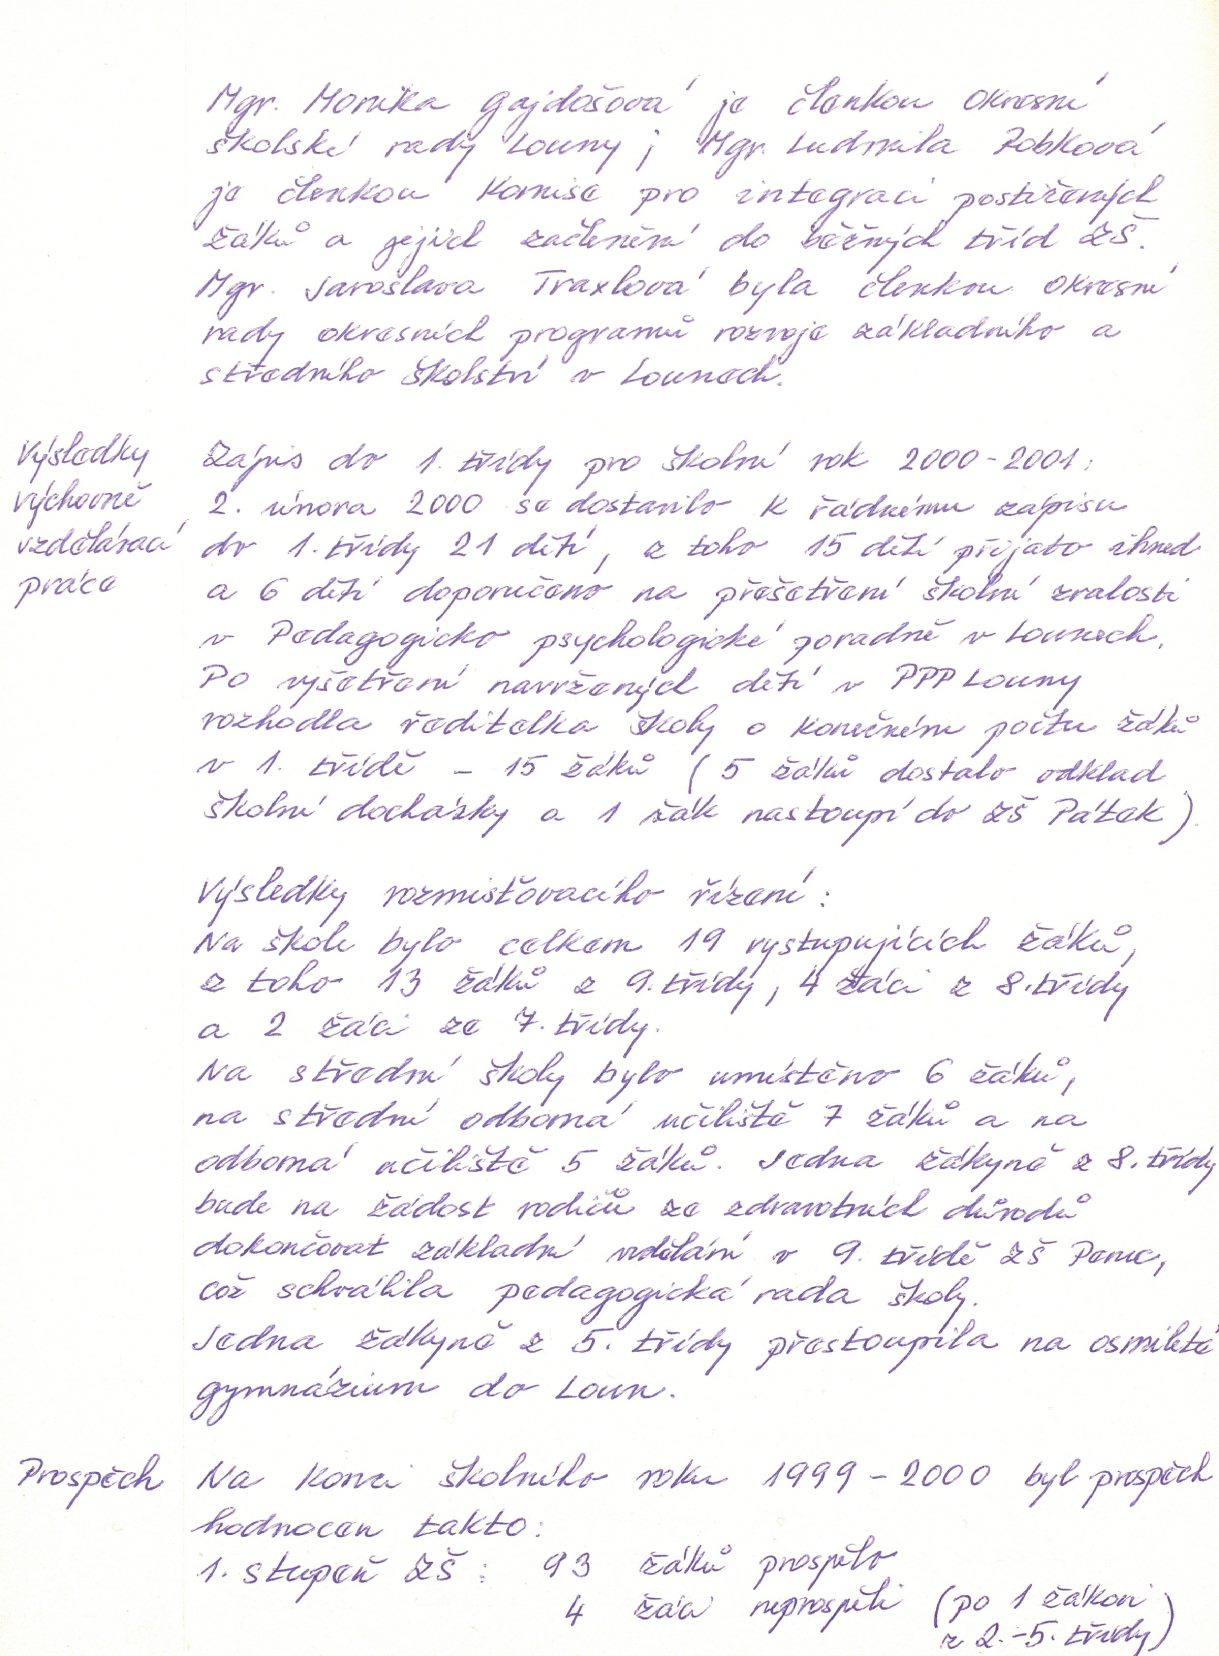 Mgr. Monika Gajdošová je členkou Okresní
školské rady Louny; Mgr. Ludmila Zobková
je členkou Komise pro integraci postižených
žáků a jejich začlenění do běžných tříd ZŠ.
Mgr. Jaroslava Traxlová byla členkou Okresní
rady okresních programů rozvoje základního a
středního školství v Lounech.
Výsledky
výchovně
vzdělávací
práce
Zápis do 1. třídy pro školní rok 2000-2001:
2. února 2000 se dostavilo k řádnému zápisu
do 1. třídy 21 dětí, z toho 15 dětí přijato ihned
a 6 dětí doporučeno na přešetření školní zralosti
v Pedagogicko psychologické poradně v Lounech.
Po vyšetření navržených dětí v PPP Louny
rozhodla ředitelka školy o konečném počtu žáků
v 1. třídě - 15 žáků (5 žáků dostalo odklad
školní docházky a 1 žák nastoupí do ZŠ Pátek)
Výsledky rozmisťovacího řízení:
Na škole bylo celkem 19 vystupujících žáků,
z toho 13 žáků z 9. třídy, 4 žáci z 8. třídy
a 2 žáci ze 7. třídy.
Na střední školy bylo umístěno 6 žáků,
na střední odborná učiliště 7 žáků a na
odborná učiliště 5 žáků. Jedna žákyně z 8. třídy
bude na žádost rodičů ze zdravotních důvodů
dokončovat základní vzdělání v 9. třídě ZŠ Peruc,
což schválila pedagogická rada školy.
Jedna žákyně z 5. třídy přestoupila na osmileté
gymnázium do Loun.
Prospěch
Na konci školního roku 1999-2000 byl prospěch
hodnocen takto:
1. stupeň ZŠ: 93 žáků prospělo
4 žáci neprospěli (po 1 žákovi
z 2.-5. třídy)